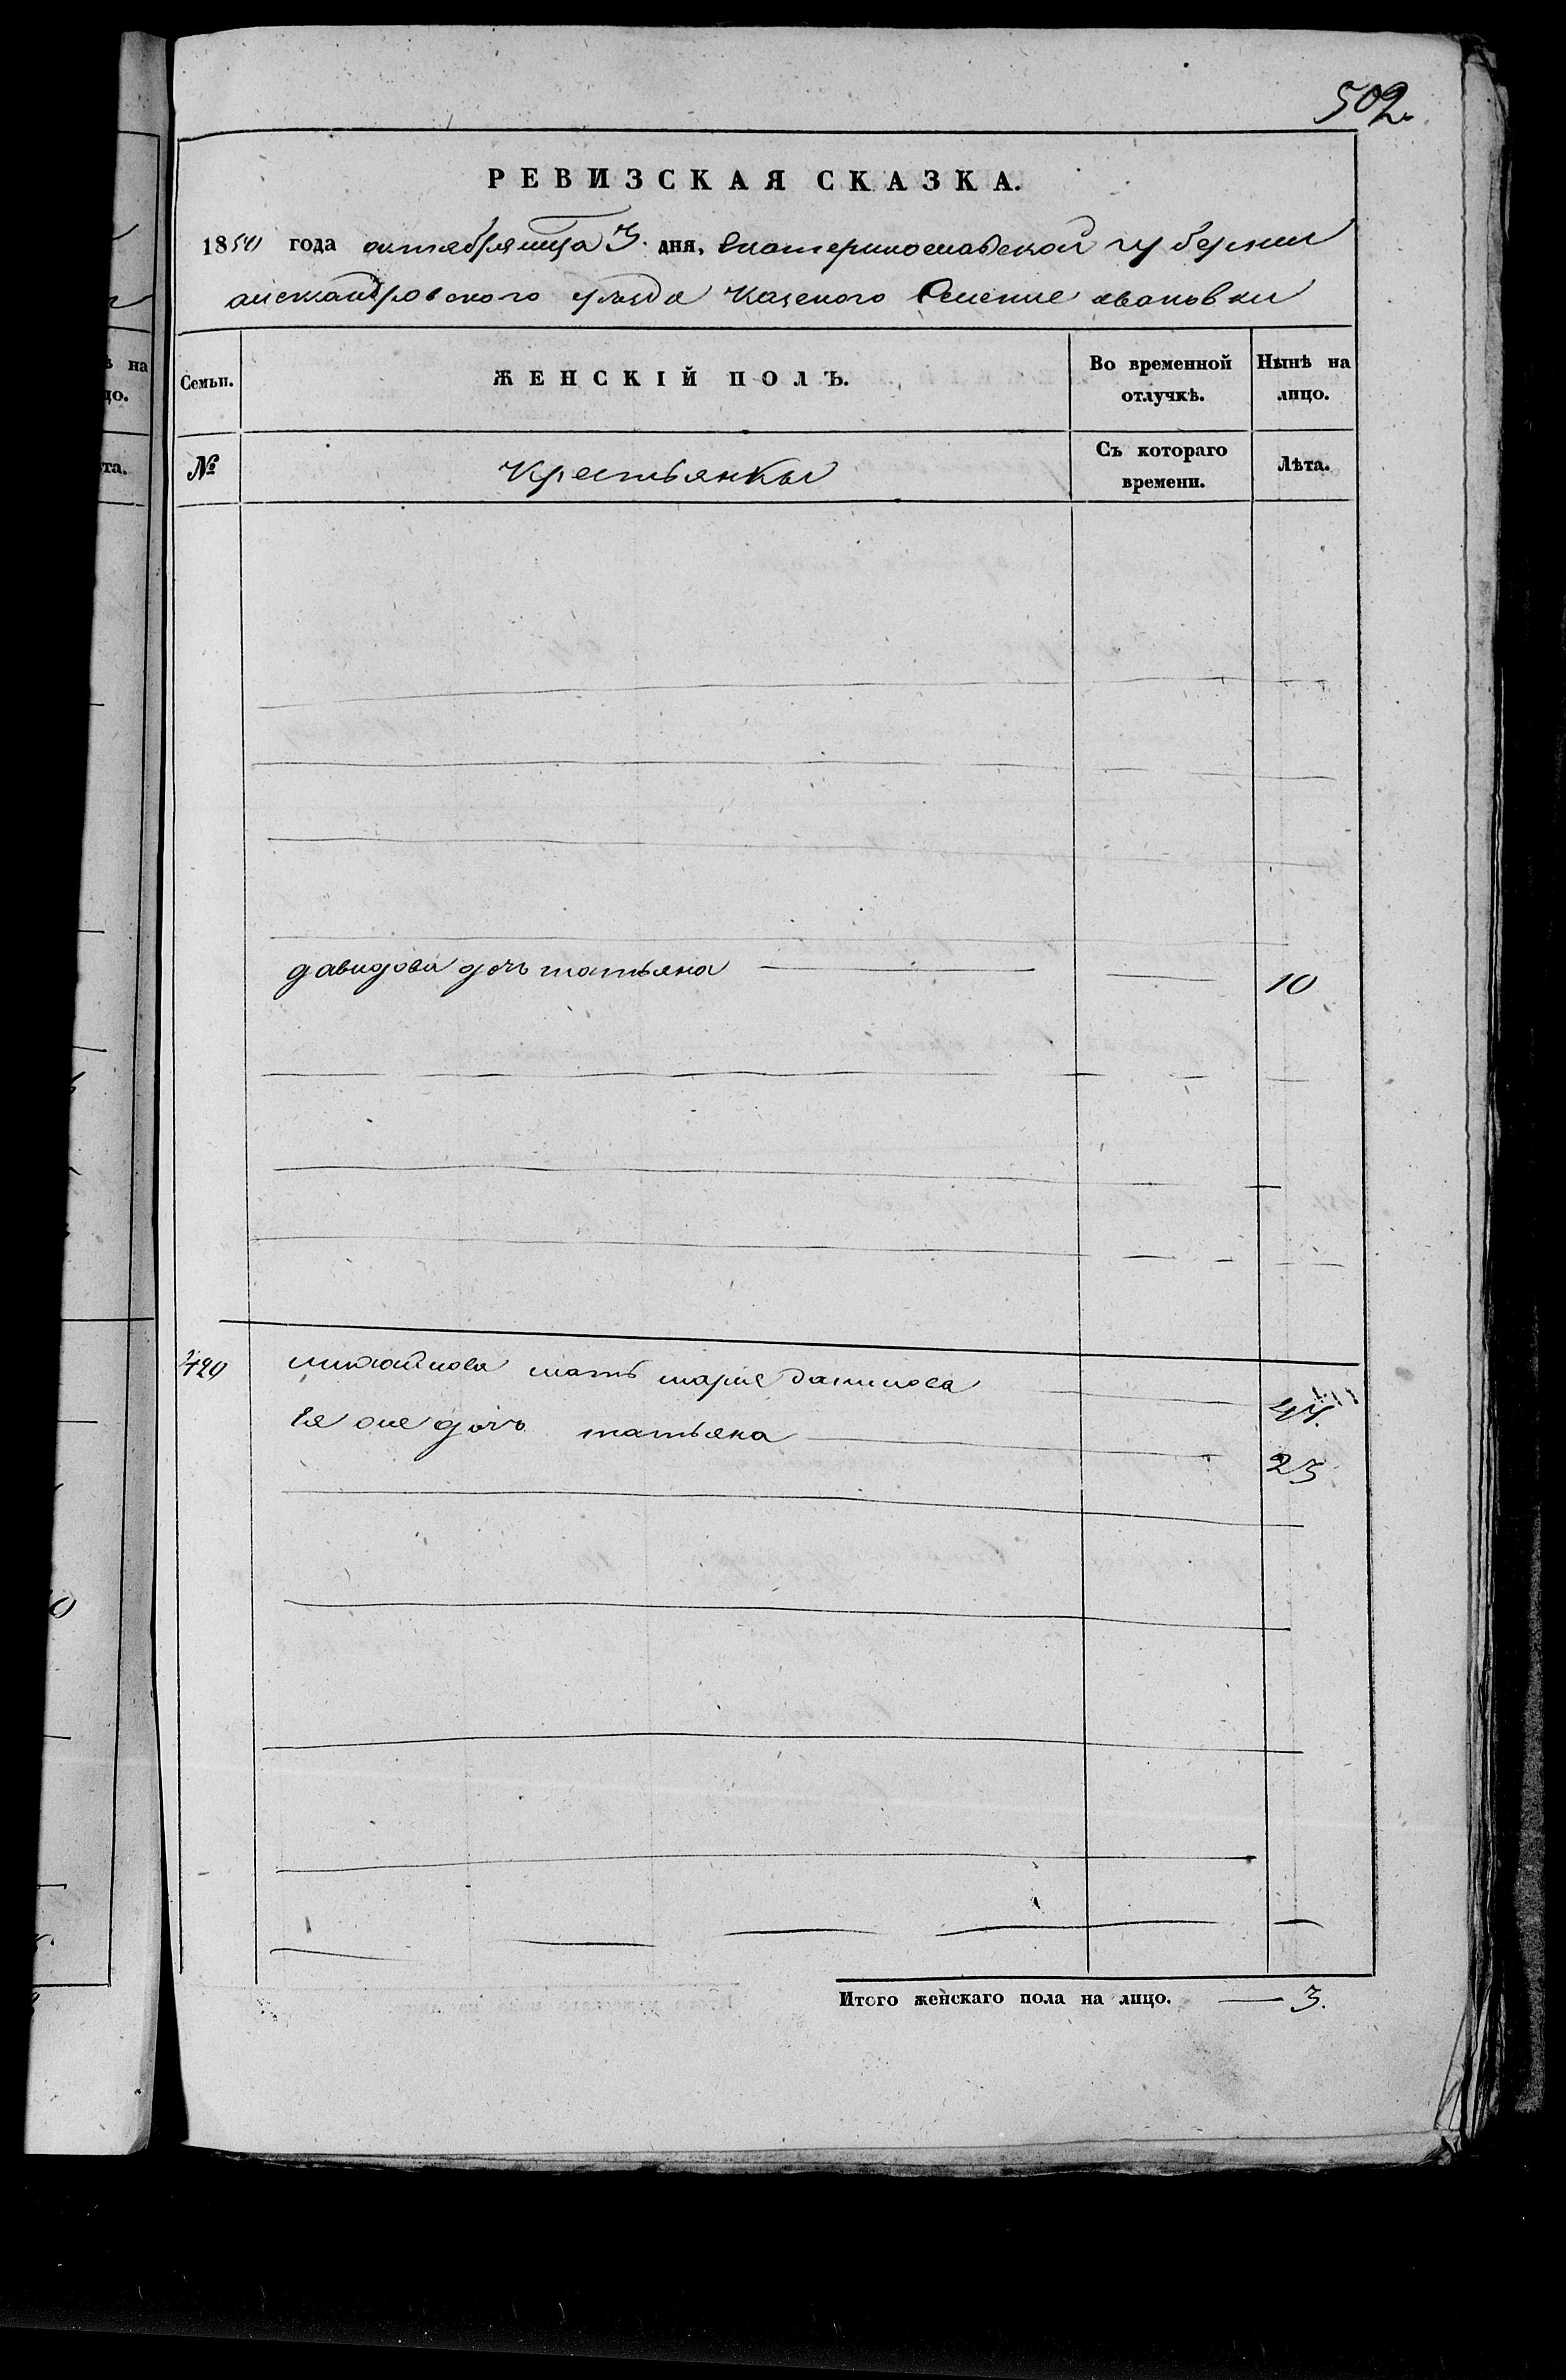 502.
РЕВИЗСКАЯ СКАЗКА.
1850 года октября мца 3. дня, Екатеринославской губернии
александровского уезда Казеного Селение ивановки
Семьи. ЖЕНСКІЙ ПОЛЪ. Во временной отлучкѣ. Нынѣ на лицо.
№ Крестьянкы Съ котораго времени. Лѣта.
давидова доч татьяна 10
420 михайлова мать марие данилова 47.
Ея оле доч татьяна 23
Итого женскаго пола на лицо. — 3.
ѣ на
цо.
та.